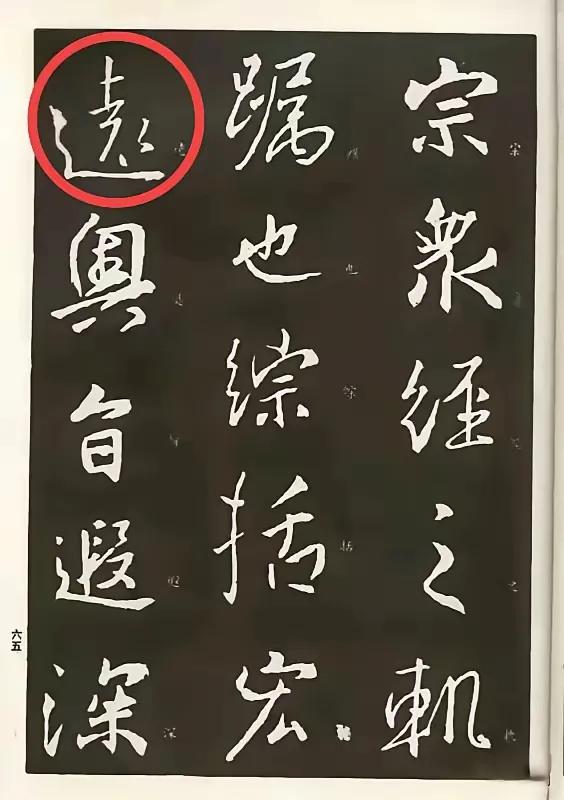 宗衆經之軌
躅也綜括宏
遠奧旨遐深
六五